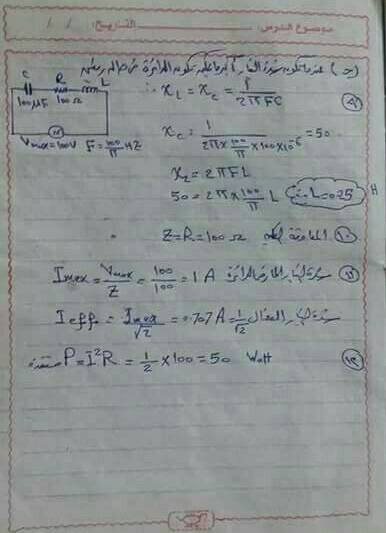 موضوع الدرس: التاريخ: / /
(ج) عندما تكون شدة التيار أكبر ما يمكن تكون الدائرة في حالة رنين
C R L
100μF 100Ω
Vmax=100V F=100/π HZ
∴ XL = XC = 1/2πFC
XC = 1/(2π×100/π×100×10⁻⁶) = 50
XL = 2πFL
50 = 2π×100/π L ∴ L=0.25 H
(10) المعاوقة الكلية Z=R=100Ω
(11) شدة التيار المار في الدائرة Imax = Vmax/Z = 100/100 = 1 A
شدة التيار الفعال Ieff = Imax/√2 = 0.707 A = 1/√2
(12) P = I²R = 1/2 × 100 = 50 Watt